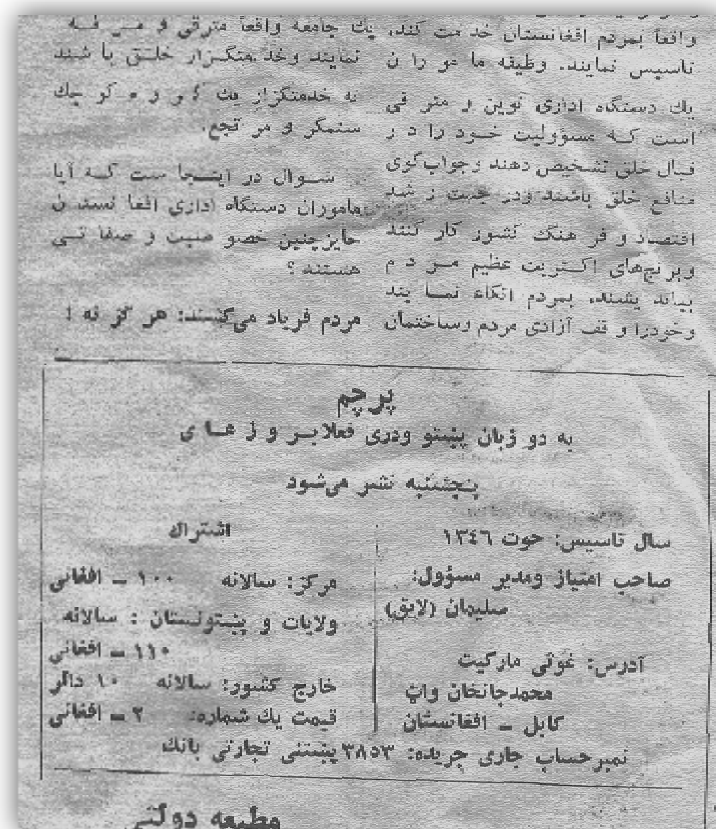 واقعاً بمردم افغانستان خدمت کنند، یك جامعه واقعاً مترقی و مر فه
تاسیس نمایند. وظیفه ما مو را ن
یك دستگاه اداری نوین و متر قی
است كه مسؤولیت خود را د ر
قبال خلق تشخیص دهند وجواب‌گوی
منافع خلق باشند ودر جهت ر شد
اقتصاد و فر هنگ کشور کار کنند
وبر نج‌های اکثریت عظیم مر د م
بمردم اتکاء نما یند
وخودرا و قف آزادی مردم وساختمان
نمایند وخدمتگزار خلق با شند
نه خدمتگزار یك گر و ه کو چك
ستمگر و مر تجع.
سوال در اینجا ست كه آیا
ماموران دستگاه اداری افغا نستا ن
حایز چنین خصو صیت و صفا تی
هستند ؟
مردم فریاد می‌کنند: هر گز نه !
پرچم
به دو زبان پښتو ودری فعلا بر و ز ها ی
پنجشنبه نشر می‌شود
سال تاسیس: حوت ۱۳٤٦
صاحب امتیاز ومدیر مسؤول:
سلیمان (لایق)
آدرس: غوثی مارکیت
محمدجانخان وات
کابل ــ افغانستان
اشتراك
مرکز: سالانه ۱۰۰ ــ افغانی
ولایات و پښتونستان : سالانه
۱۱۰ ــ افغانی
خارج کشور: سالانه ۱۰ دالر
قیمت یك شماره: ۲ ــ افغانی
نمبر حساب جاری جریده: ۳۸۵۳ پښتنی تجارتی بانك
مطبعه دولتی